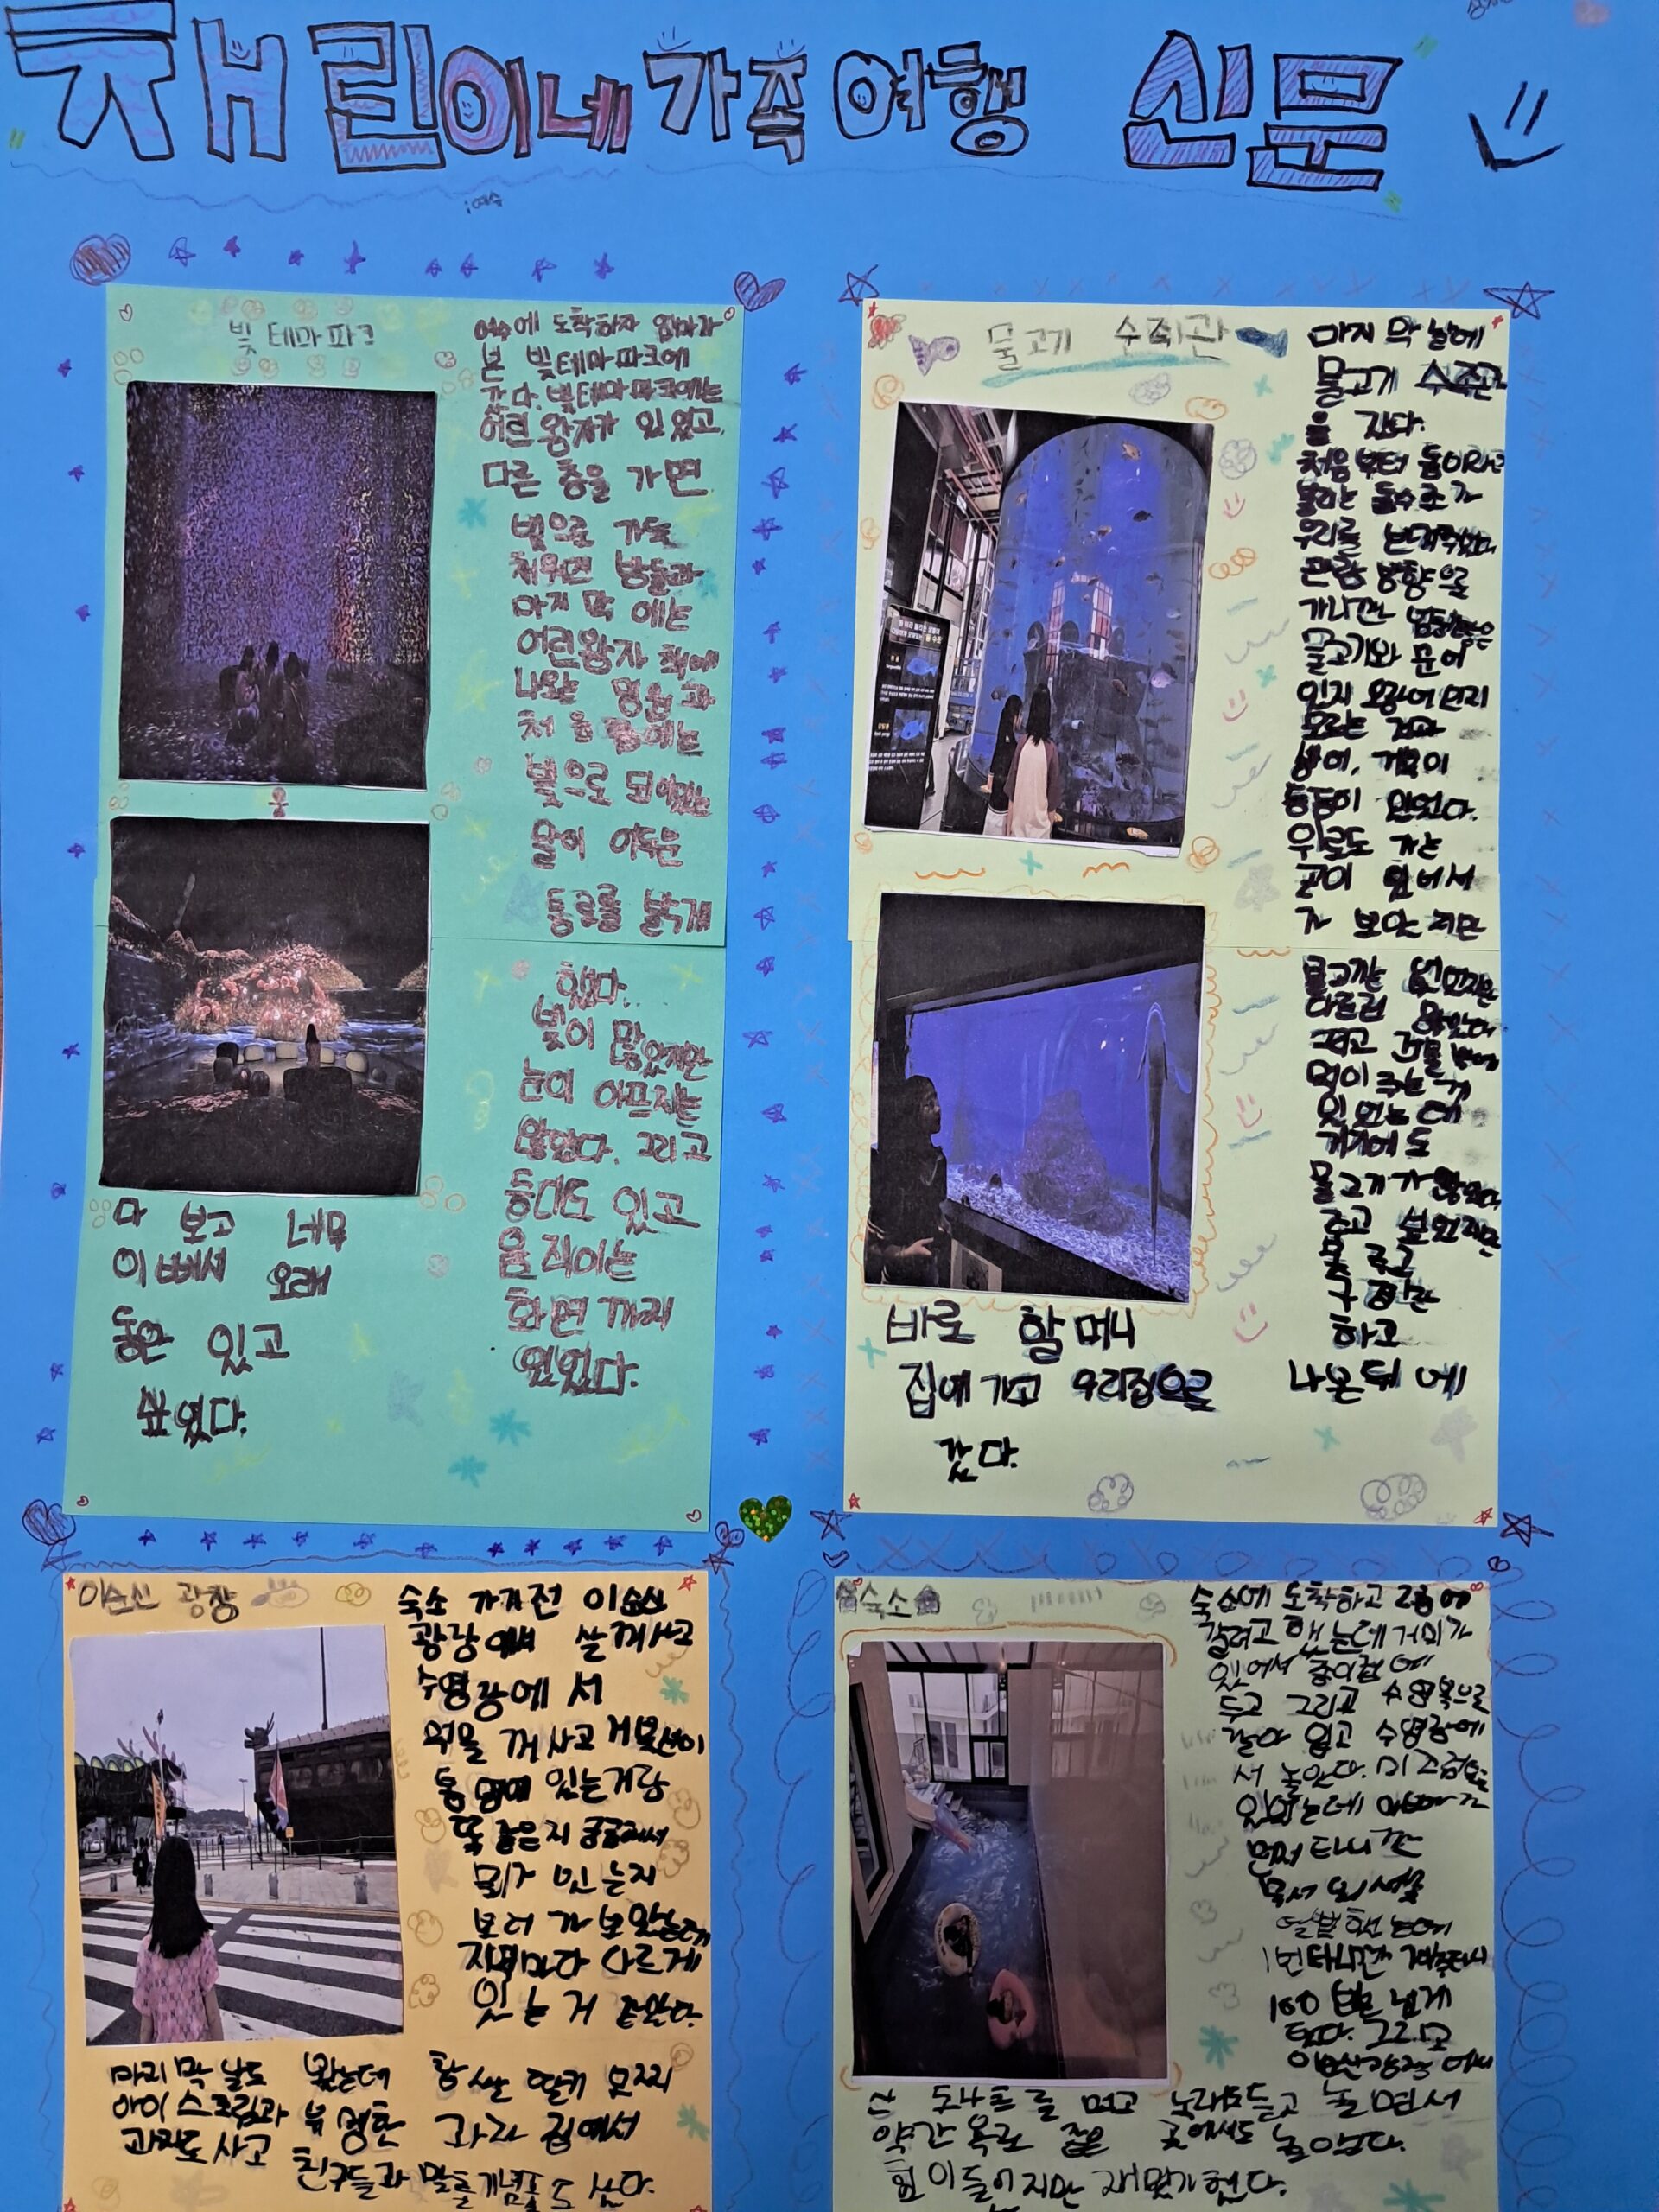 채린이네 가족여행 신문
:여수
빛 테마파크
여수에 도착하자 엄마가
본 빛테마파크에
갔다. 빛테마파크에는
어린왕자가 있었고,
다른 층을 가면
빛으로 가득
채워진 방들과
마지막에는
어린왕자 책에
나오는 명언과
처음 층에는
빛으로 되어있는
물이 어두운
통로를 밝게
했다.
빛이 많았지만
눈이 아프지는
않았다. 그리고
등대도 있고
움직이는
화면까지
있었다.
다 보고 너무
이뻐서 오래
동안 있고
싶었다.
물고기 수족관
마지막 날에
물고기 수족관
을 갔다.
처음부터 둥이라고
불리는 돌수조가
우리를 반겨주었다.
관람 방향으로
가니깐
물고기와 문어
인지 오징어인지
모르는 거와
방어, 거북이
등등이 있었다.
위로도 가는
곳이 있어서
가 보았지만
물고기는
다르진 않았다
그리고 건물 밖에
먹이 주는 게
있었는데
거기에도
물고기가 많았다.
주고 싶었지만
못 주고
구경만
하고
나온 뒤에
바로 할머니
집에 가고 우리집으로
갔다.
이순신 광장
숙소 가기전 이순신
광장에서 살꺼 사고
수영장에서
먹을 꺼 사고 거북선이
통영에 있는거랑
똑같은지 궁금해서
뭐가 있는지
보러 가 보았는데
지역마다 다르게
있는 거 같았다.
마지막 날도 왔는데 황쌀 딸기 모찌
아이스크림과 유명한 과자 집에서
과자도 사고
친구들과 말을 기념품도 샀다.
숙소
숙소에 도착하고 2층에
갈려고 했는데 거미가
있어서 종이컵에
두고 그리고 수영복으로
갈아 입고 수영장에
서 놀았다. 미끄럼틀도
있었는데 아빠가
먼저 타니깐
1번 타니깐 재미있어서
100번은 넘게
탔다. 그리고
이순신광장에서
산 도나츠를 먹고 노래도 듣고 놀면서
약간 욕조 같은 곳에서도 놀았다.
힘이들어지만 재밌기했다.